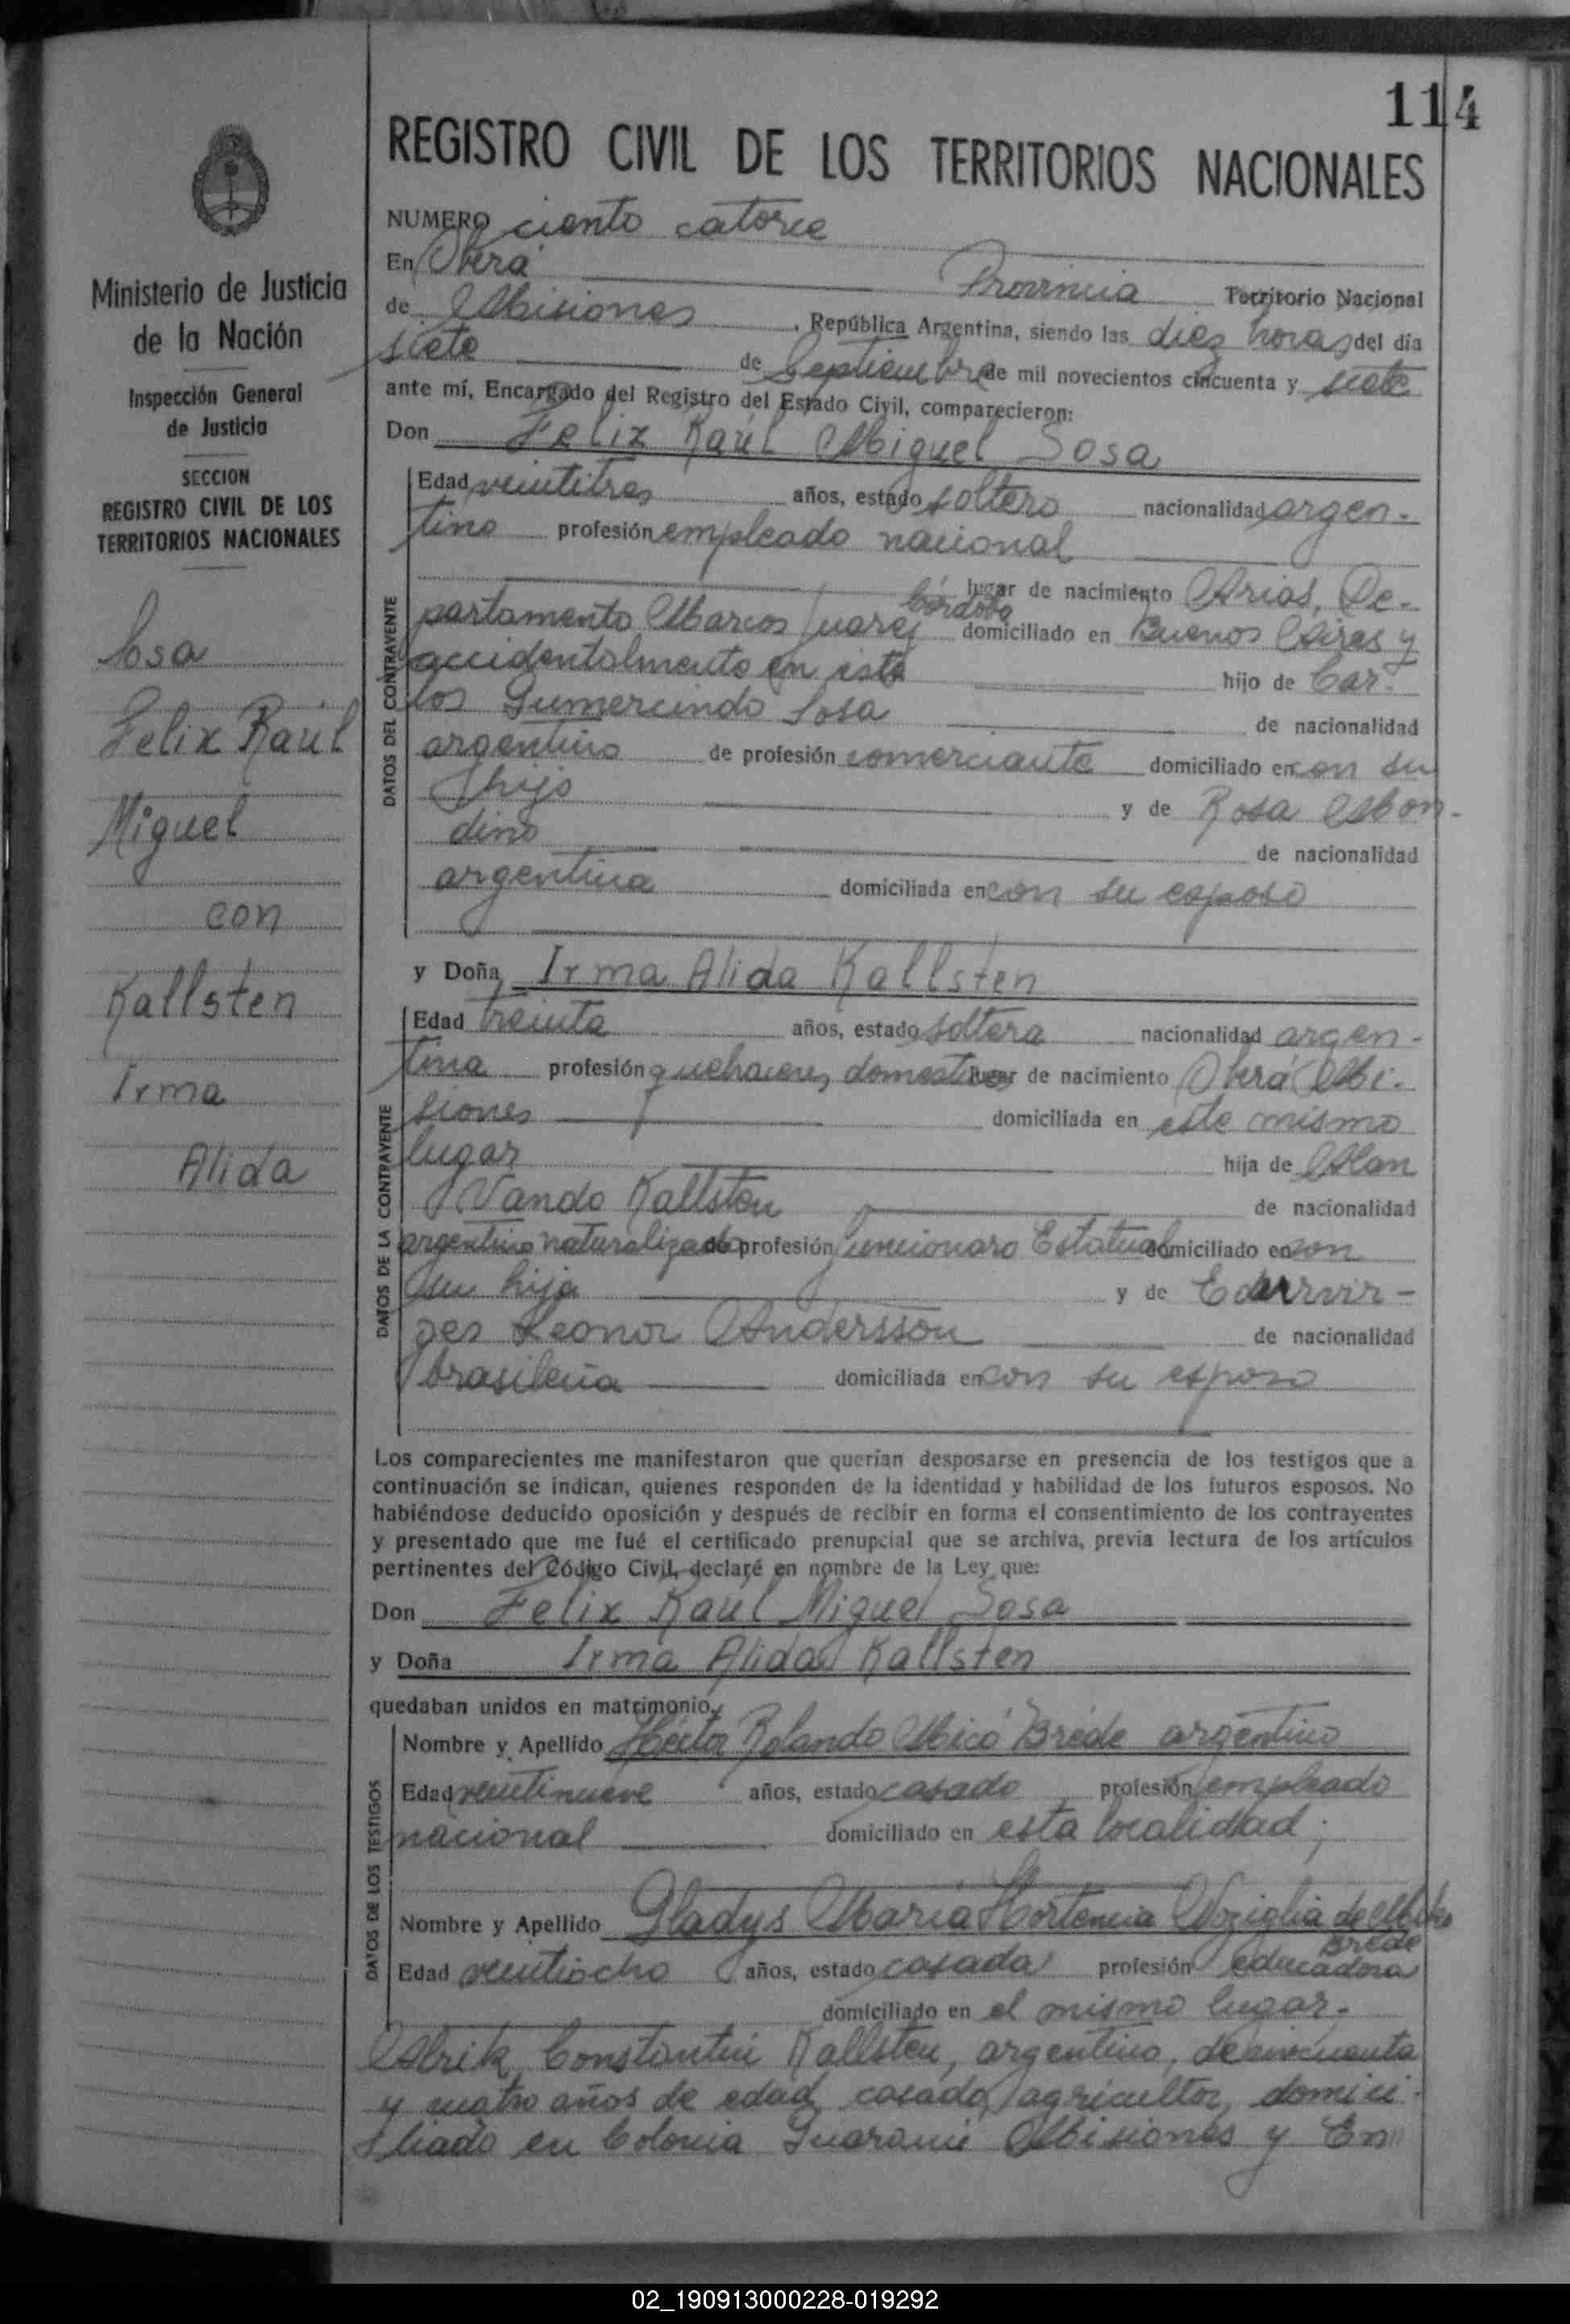 114
REGISTRO CIVIL DE LOS TERRITORIOS NACIONALES
Ministerio de Justicia
de la Nación
Inspección General
de Justicia
SECCION
REGISTRO CIVIL DE LOS
TERRITORIOS NACIONALES
Sosa
Felix Raúl
Miguel
con
Kallsten
Irma
Alida
NUMERO ciento catorce
En Oberá Provincia Territorio Nacional
de Misiones , República Argentina, siendo las diez horas del día
siete de Septiembre de mil novecientos cincuenta y siete
ante mí, Encargado del Registro del Estado Civil, comparecieron:
Don Felix Raúl Miguel Sosa
DATOS DEL CONTRAYENTE
Edad veintitres años, estado soltero nacionalidad argen-
tino profesión empleado nacional
lugar de nacimiento Arias, De-
partamento Marcos Juarez Córdoba domiciliado en Buenos Aires y
accidentalmente en esta hijo de Car-
los Gumercindo Sosa de nacionalidad
argentino de profesión comerciante domiciliado en con su
hijo y de Rosa Mon-
dino de nacionalidad
argentina domiciliada en con su esposo
y Doña Irma Alida Kallsten
DATOS DE LA CONTRAYENTE
Edad treinta años, estado soltera nacionalidad argen-
tina profesión quehaceres domesticos lugar de nacimiento Oberá Mi-
siones domiciliada en este mismo
lugar hija de
Vando Kallsten de nacionalidad
argentino naturalizado de profesión funcionaro Estatual domiciliado en con
su hija y de
Leonor Andersson de nacionalidad
brasileña domiciliada en con su esposo
Los comparecientes me manifestaron que querían desposarse en presencia de los testigos que a
continuación se indican, quienes responden de la identidad y habilidad de los futuros esposos. No
habiéndose deducido oposición y después de recibir en forma el consentimiento de los contrayentes
y presentado que me fué el certificado prenupcial que se archiva, previa lectura de los artículos
pertinentes del Código Civil, declaré en nombre de la Ley que:
Don Felix Raúl Miguel Sosa
y Doña Irma Alida Kallsten
quedaban unidos en matrimonio.
DATOS DE LOS TESTIGOS
Nombre y Apellido Héctor Rolando Micó Bréde argentino
Edad veintinueve años, estado casado profesión empleado
nacional domiciliado en esta localidad;
Nombre y Apellido Gladys María Hortencia de
Brede
Edad veintiocho años, estado casada profesión educadora
domiciliado en el mismo lugar.
Constantin Kallsten, argentino, de cincuenta
y cuatro años de edad, casado, agricultor, domici-
liado en Colonia Guaraní Misiones y En
02_190913000228-019292